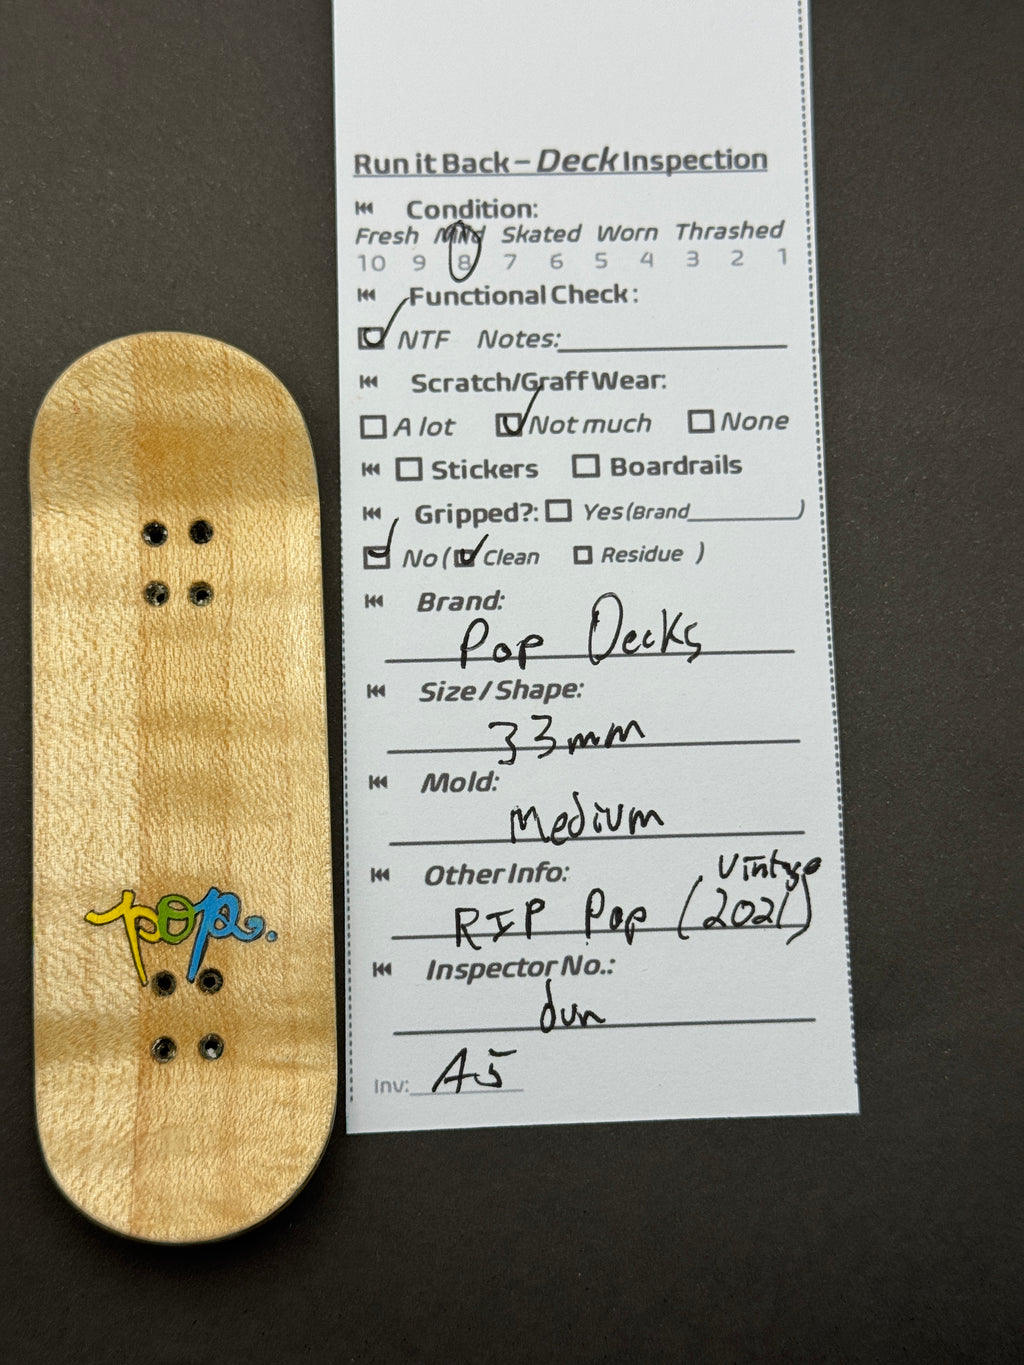 Run it Back – Deck Inspection
Condition:
Fresh Mild Skated Worn Thrashed
10 9 8 7 6 5 4 3 2 1
Functional Check:
NTF Notes:
Scratch/Graff Wear:
A lot Not much None
Stickers Boardrails
Gripped?: Yes (Brand )
No ( Clean Residue )
Brand:
Pop Decks
Size / Shape:
33mm
Mold:
Medium
Other Info:
Vintage
RIP Pop (2021)
Inspector No.:
dun
Inv: A5
pop.